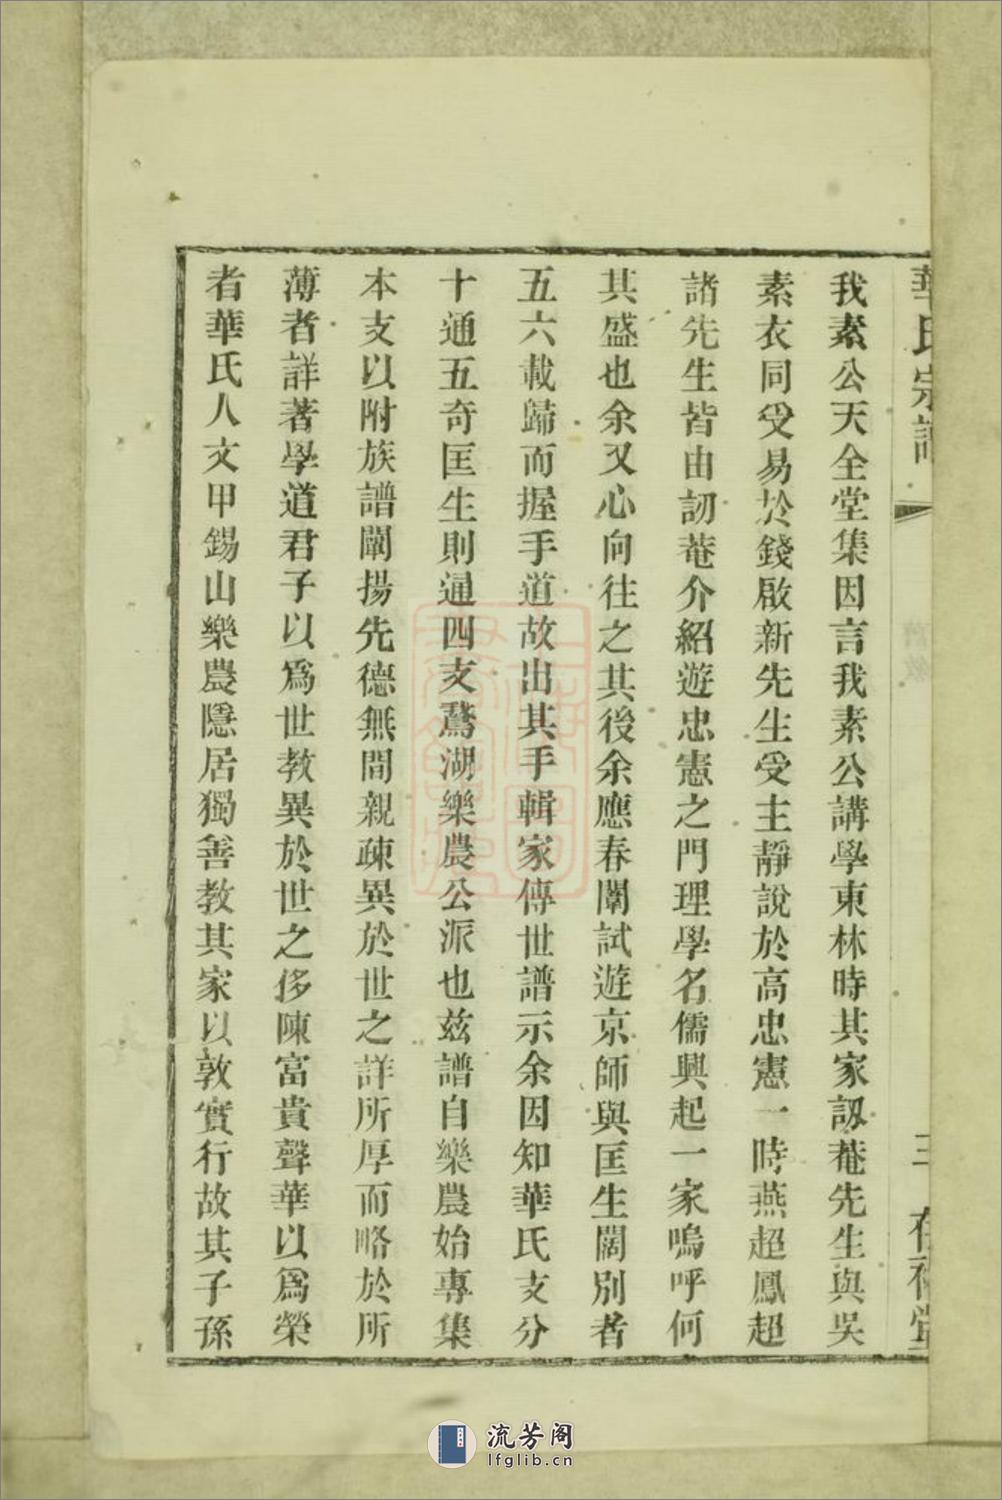 華氏宗譜
三
我素公天全堂集因言我素公講學東林時其家訒菴先生與吳
素衣同受易於錢啟新先生受主靜說於高忠憲一時燕超鳳超
諸先生皆由訒菴介紹遊忠憲之門理學名儒興起一家嗚呼何
其盛也余又心向往之其後余應春闈試遊京師與匡生闊別者
五六載歸而握手道故出其手輯家傳世譜示余因知華氏支分
十通五奇匡生則通四支鵞湖樂農公派也玆譜自樂農始專集
本支以附族譜闡揚先德無間親疎異於世之詳所厚而略於所
薄者詳著學道君子以爲世教異於世之侈陳富貴聲華以爲榮
者華氏人文甲錫山樂農隱居獨善教其家以敦實行故其子孫
流芳阁
lfglib.cn